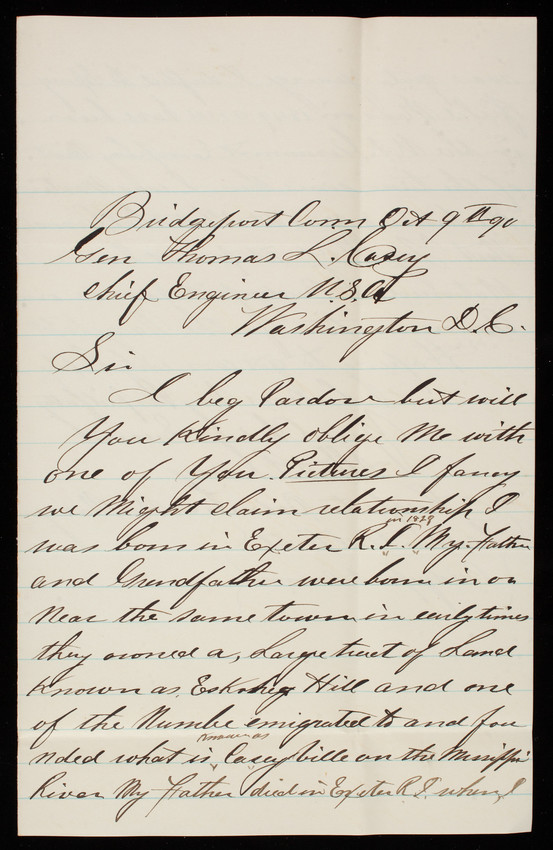 Bridgeport Conn Oct 9th 90
Gen Thomas L. Casey
Chief Engineer U.S.A
Washington D.C.
Sir
I beg Pardon but will
You Kindly oblige Me with
one of You Pictures I fancy
we Might claim relationship I
in 1829
was born in Exeter R.I. My Father
and Grandfather were born in or
Near the same town in early times
they owned a, Large tract of Land
Known as Hill and one
of the Numbe emigrated to and fou
known as
nded what is Casey ville on the Missippi
River My Father died in Exeter R.I. when I